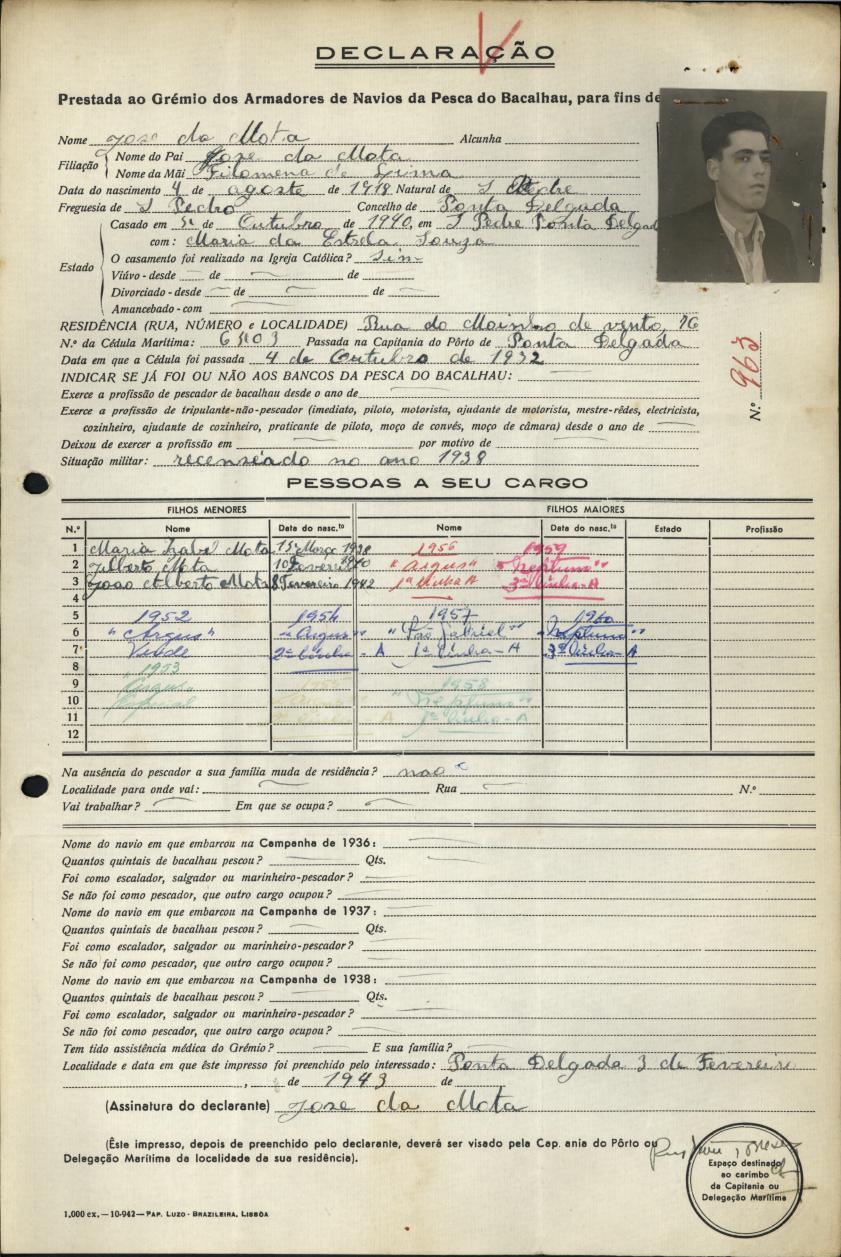 DECLARAÇÃO
Prestada ao Grémio dos Armadores de Navios da Pesca do Bacalhau, para fins de
Nome José da Mota Alcunha
Filiação
Nome do Pai José da Mota
Nome da Mãi Filomena de Lima
Data do nascimento 4 de agoste de 1918 Natural de S Pedre
Freguesia de S Pedro Concelho de Ponta Delgada
Casado em 5 de Outubro de 1940, em S Pedre Ponta Delgad
com: Maria da Estrela Souza
Estado
O casamento foi realizado na Igreja Católica? Sim
Viúvo - desde de de
Divorciado - desde de de
Amancebado - com
RESIDÊNCIA (RUA, NÚMERO e LOCALIDADE) Rua do Moinho de vento, 16
N.º da Cédula Marítima: Passada na Capitania do Pôrto de Ponta Delgada
Data em que a Cédula foi passada 4 de Outubro de 1932
N.º 963
INDICAR SE JÁ FOI OU NÃO AOS BANCOS DA PESCA DO BACALHAU:
Exerce a profissão de pescador de bacalhau desde o ano de
Exerce a profissão de tripulante-não-pescador (imediato, piloto, motorista, ajudante de motorista, mestre-rêdes, electricista,
cozinheiro, ajudante de cozinheiro, praticante de piloto, moço de convés, moço de câmara) desde o ano de
Deixou de exercer a profissão em por motivo de
Situação militar: recenseado no ano 1938
PESSOAS A SEU CARGO
FILHOS MENORES FILHOS MAIORES
N.º Nome Data do nasc.to Nome Data do nasc.to Estado Profissão
1 Maria Izabel Mota 15 Março 1938 1956 1959
2 Jilberto Mota 10 Fevereiro 1940 "Argus" "Neptuno"
3 João Alberto Mota 8 Fevereiro 1942 1ª Linha A 3ª Linha-A
4
5 1952 1954 1957 1960
6 "Argus" "Argus" "São Gabriel" "Neptuno"
7 Verde 2ª Linha - A 1ª Linha-A 3ª Linha-A
8 1953
9 Argus 1955 1958
10 Especial "Argus" "Neptuno"
11 Linha - A 1ª Linha-A
12
Na ausência do pescador a sua família muda de residência? não
Localidade para onde vai: Rua N.º
Vai trabalhar? Em que se ocupa?
Nome do navio em que embarcou na Campanha de 1936:
Quantos quintais de bacalhau pescou? Qts.
Foi como escalador, salgador ou marinheiro-pescador?
Se não foi como pescador, que outro cargo ocupou?
Nome do navio em que embarcou na Campanha de 1937:
Quantos quintais de bacalhau pescou? Qts.
Foi como escalador, salgador ou marinheiro-pescador?
Se não foi como pescador, que outro cargo ocupou?
Nome do navio em que embarcou na Campanha de 1938:
Quantos quintais de bacalhau pescou? Qts.
Foi como escalador, salgador ou marinheiro-pescador?
Se não foi como pescador, que outro cargo ocupou?
Tem tido assistência médica do Grémio? E sua família?
Localidade e data em que êste impresso foi preenchido pelo interessado: Ponta Delgada 3 de Fevereiro
, de 1943 de
(Assinatura do declarante) José da Mota
(Êste impresso, depois de preenchido pelo declarante, deverá ser visado pela Cap. ania do Pôrto ou
Delegação Marítima da localidade da sua residência).
Espaço destinado
ao carimbo
da Capitania ou
Delegação Marítima
1,000 ex. — 10-942 — PAP. LUZO-BRAZILEIRA, LISBÔA